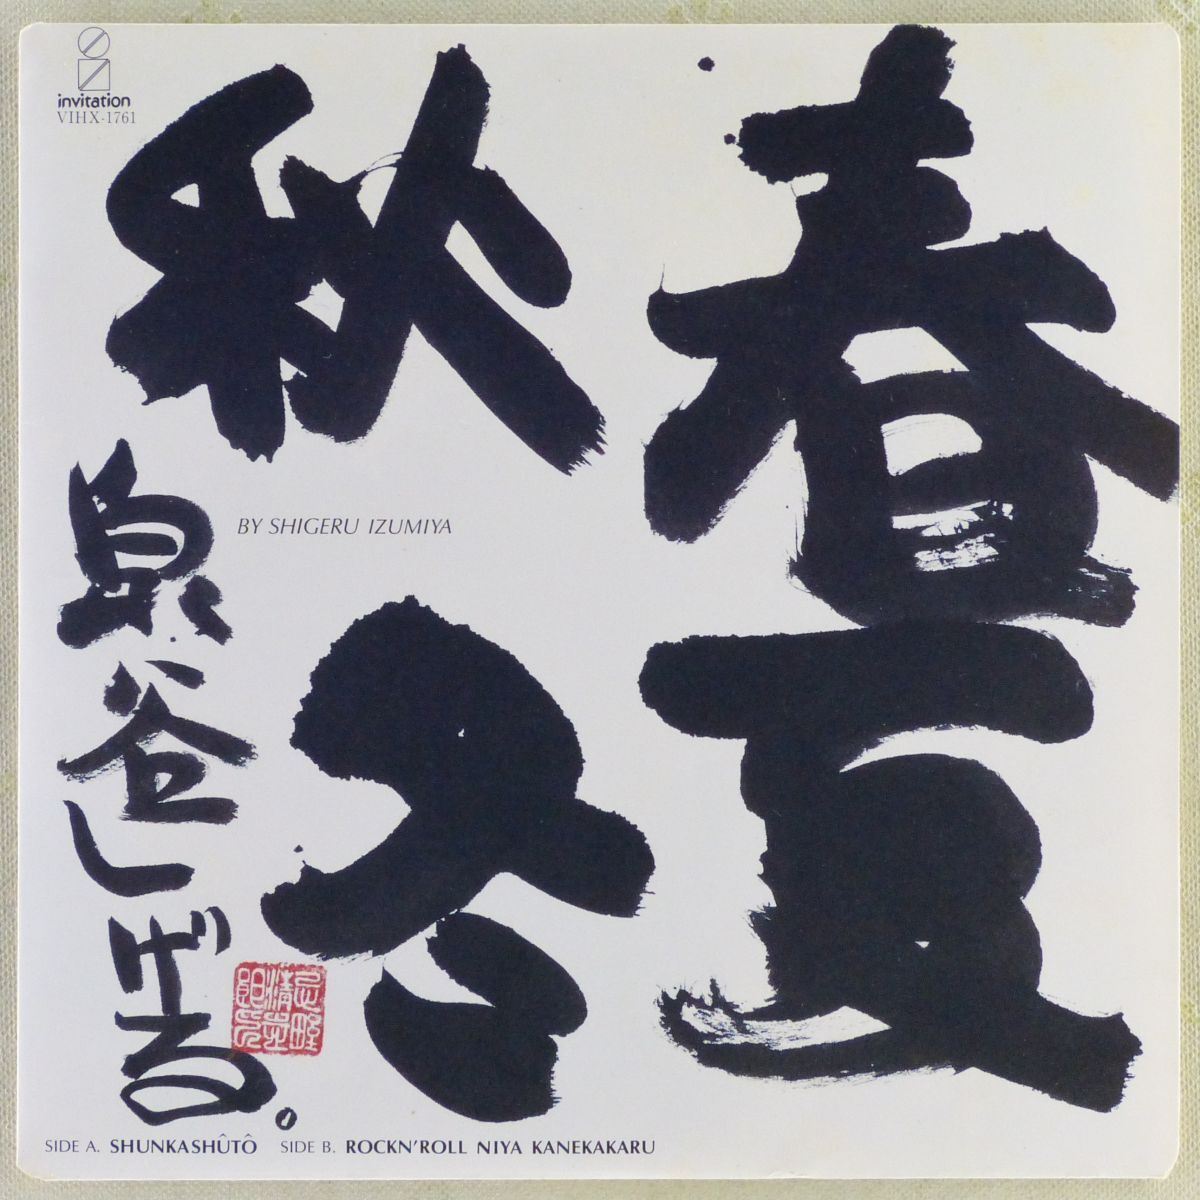 invitation
VIHX-1761
春夏
秋冬
泉谷しげる。
BY SHIGERU IZUMIYA
SIDE A. SHUNKASHÛTÔ SIDE B. ROCKN'ROLL NIYA KANEKAKARU